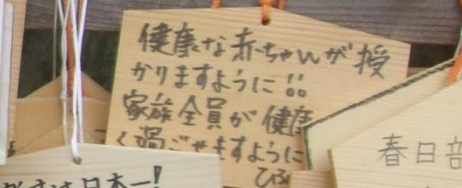 健康な赤ちゃんが授
かりますように!!
家族全員が健康
く過ごせますように
ひろ
春日部
日本一!